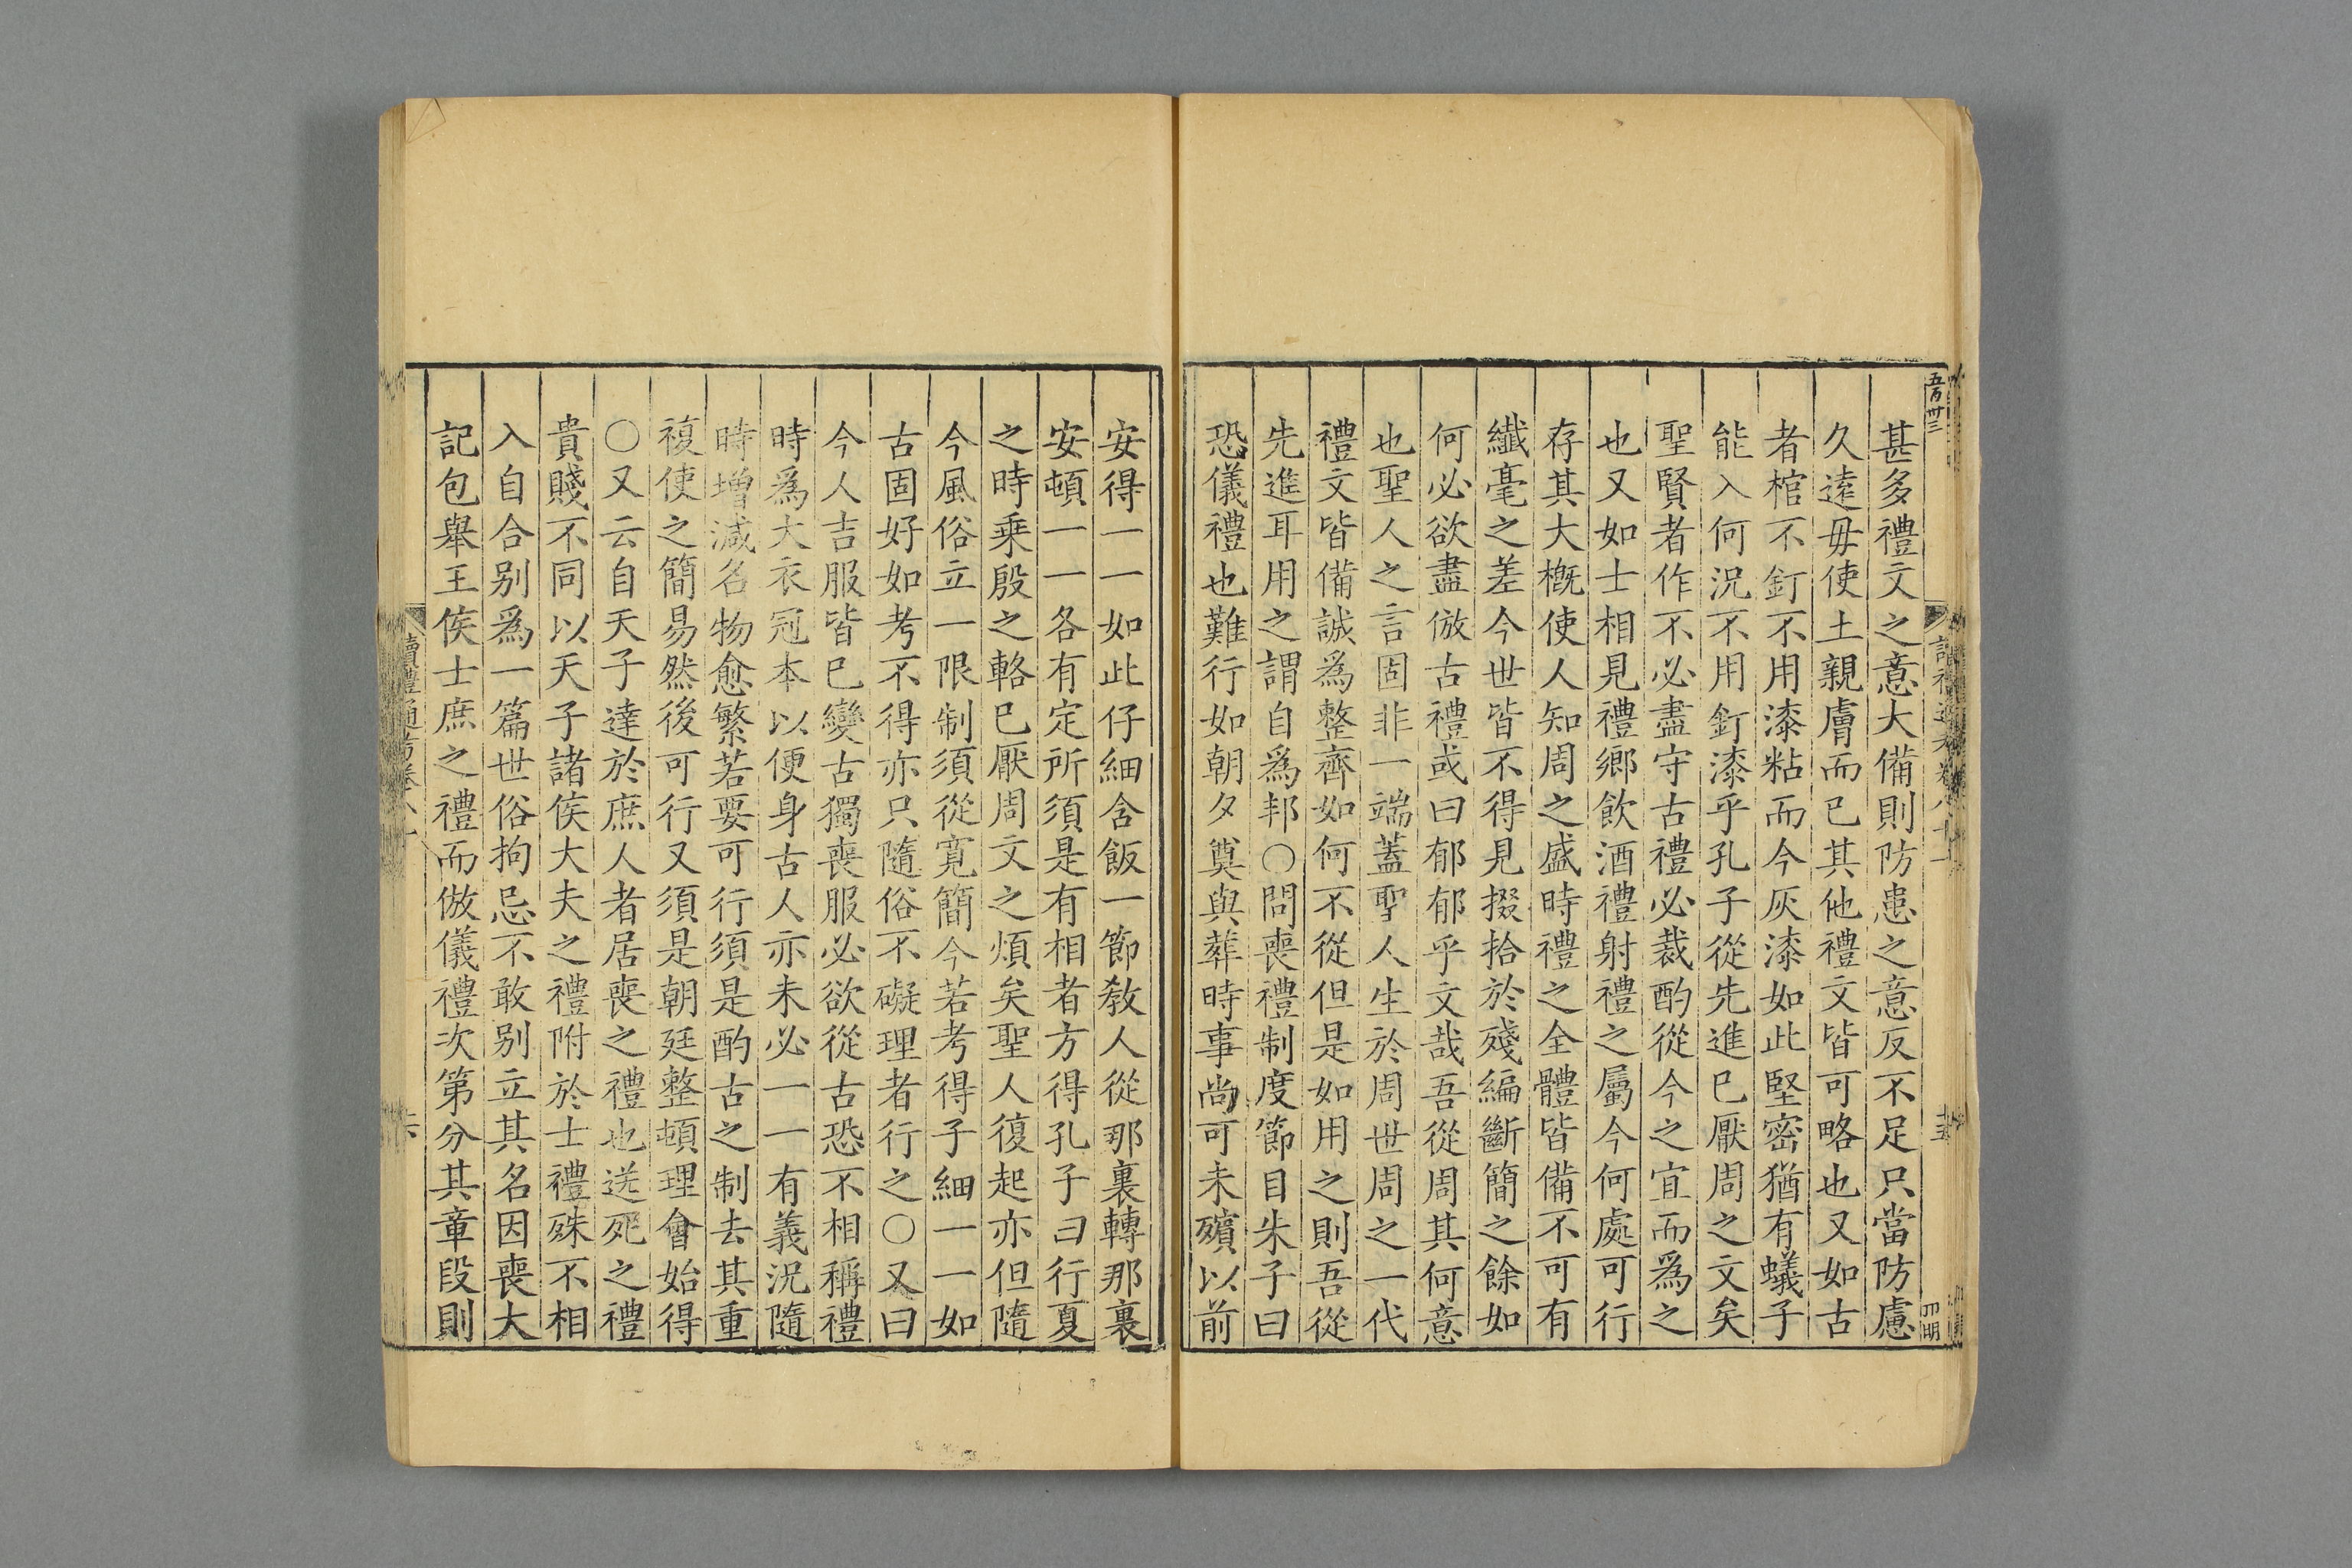 五百卅三
甚多禮文之意大備則防患之意反不足只當防慮
久遠毋使土親膚而已其他禮文皆可略也又如古
者棺不釘不用漆粘而今灰漆如此堅密猶有蟻子
能入何況不用釘漆乎孔子從先進已厭周之文矣
聖賢者作不必盡守古禮必裁酌從今之宜而爲之
也又如士相見禮鄉飲酒禮射禮之屬今何處可行
存其大槪使人知周之盛時禮之全體皆備不可有
纖毫之差今世皆不得見掇拾於殘編斷簡之餘如
何必欲盡倣古禮或曰郁郁乎文哉吾從周其何意
也聖人之言固非一端蓋聖人生於周世周之一代
禮文皆備誠爲整齊如何不從但是如用之則吾從
先進耳用之謂自爲邦○問喪禮制度節目朱子曰
恐儀禮也難行如朝夕奠與葬時事尚可未殯以前
安得一一如此仔細含飯一節敎人從那裏轉那裏
安頓一一各有定所須是有相者方得孔子曰行夏
之時乘殷之輅已厭周文之煩矣聖人復起亦但隨
今風俗立一限制須從寬簡今若考得子細一一如
古固好如考不得亦只隨俗不礙理者行之○又曰
今人吉服皆已變古獨喪服必欲從古恐不相稱禮
時爲大衣冠本以便身古人亦未必一一有義況隨
時增減名物愈繁若要可行須是酌古之制去其重
複使之簡易然後可行又須是朝廷整頓理會始得
○又云自天子達於庶人者居喪之禮也送死之禮
貴賤不同以天子諸侯大夫之禮附於士禮殊不相
入自合别爲一篇世俗拘忌不敢别立其名因喪大
記包舉王侯士庶之禮而倣儀禮次第分其章段則
讀禮通考卷八十